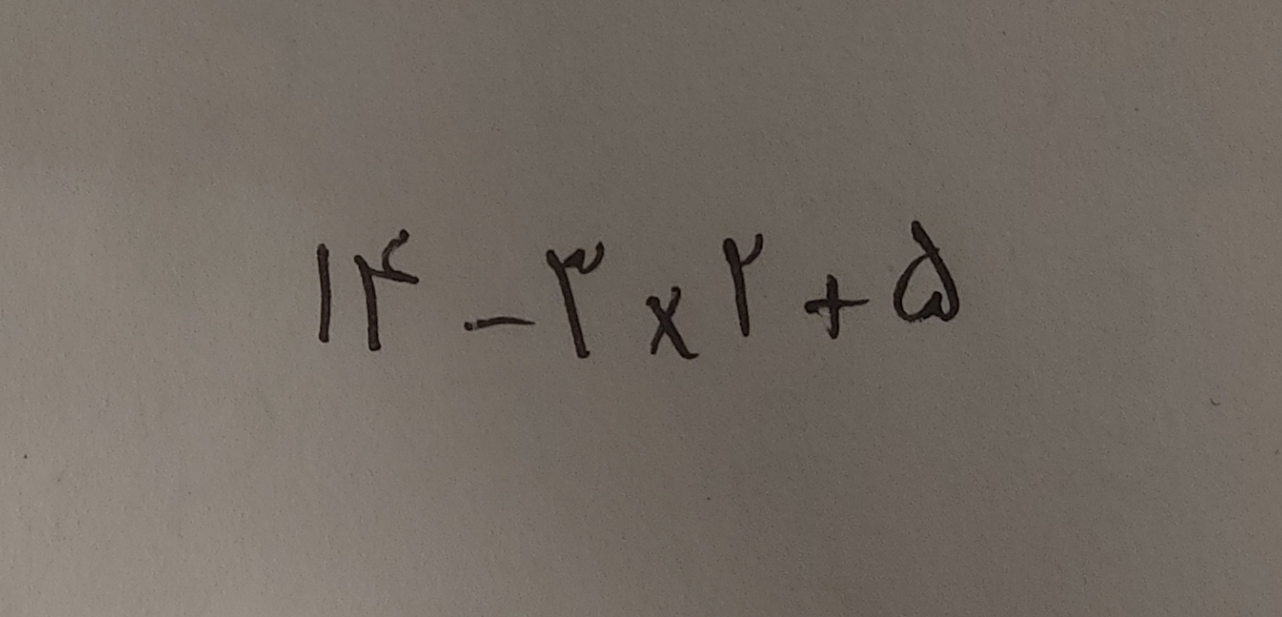 ۱۴ - ۳ × ۲ + ۵